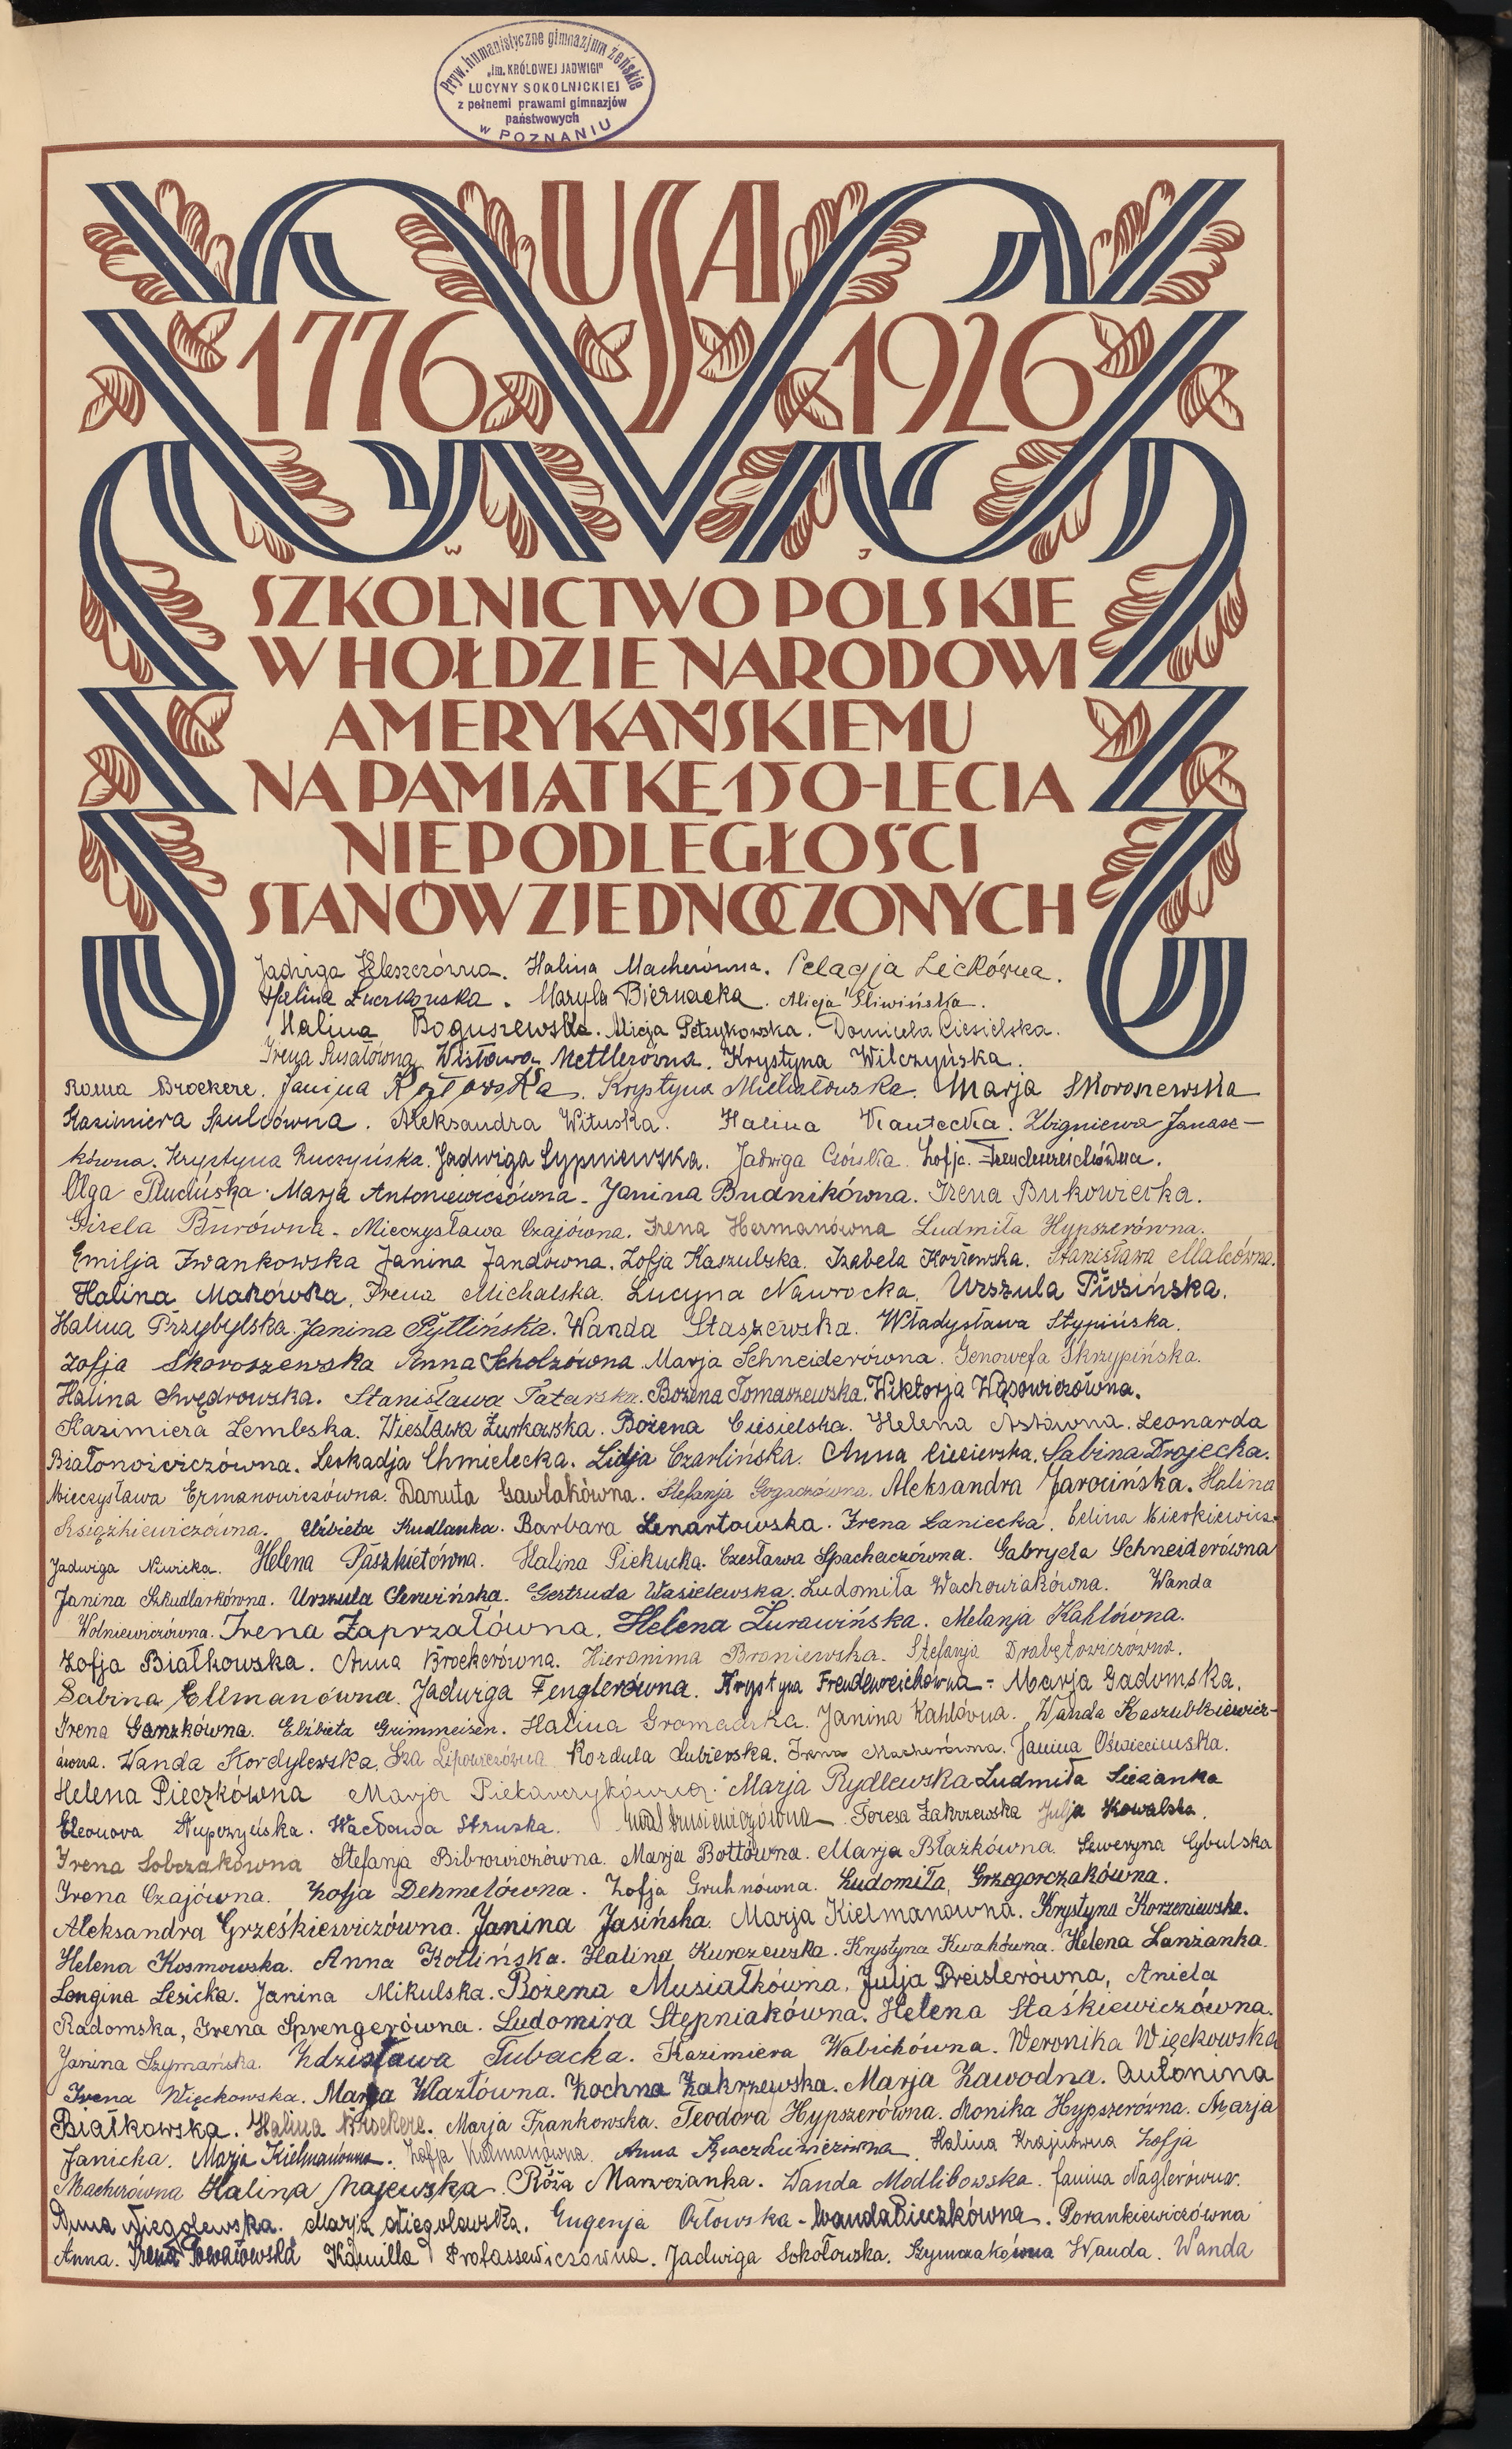 Pryw. humanistyczne gimnazjum żeńskie
„im. KRÓLOWEJ JADWIGI”
LUCYNY SOKOLNICKIEJ
z pełnemi prawami gimnazjów
państwowych
w POZNANIU
USA
1776 1926
W J
SZKOLNICTWO POLSKIE
W HOŁDZIE NARODOWI
AMERYKAŃSKIEMU
NA PAMIĄTKĘ 150-LECIA
NIEPODLEGŁOŚCI
STANÓW ZJEDNOCZONYCH
Jadwiga Halina Macherówna. Pelagja Lickówna.
Halina Maryla Biernacka. Alicja Śliwińska.
Halina Boguszewska. Alicja Petrykowska. Domicela Ciesielska.
Irena Wisława Mettlerówna. Krystyna Wilczyńska.
Roma Broekere. Janina Kozłowska. Krystyna Michałowska. Marja Skoroszewska
Kazimiera Szulcówna. Aleksandra Wituska. Halina Zbigniewa Janasz-
kówna. Krystyna Ruczyńska. Jadwiga Sypniewska. Jadwiga Górska. Zofja.
Olga Marja Antoniewiczówna. Janina Budnikówna. Irena Bukowiecka.
Gizela Burówna. Mieczysława Czajówna. Irena Hermanówna Ludmiła Hypszerówna.
Emilja Iwankowska Janina Jandówna. Zofja Kaszulska. Izabela Korzewska. Stanisława Malcówna.
Halina Makówka. Irena Michalska. Lucyna Nawrocka. Urszula Piosińska.
Halina Przybylska. Janina Pytlińska. Wanda Staszewska. Władysława Stypińska.
Zofja Skoroszewska Anna Scholzówna. Marja Schneiderówna. Genowefa Skrzypińska.
Halina Swędrowska. Stanisława Tatarska. Bożena Tomaszewska. Wiktorja Wąsowiczówna.
Kazimiera Zembska. Wiesława Żurkowska. Bożena Ciesielska. Helena Leonarda
Białonowiczówna. Leokadja Chmielecka. Lidja Czarlińska. Anna Sabina Drojecka.
Mieczysława Ermanowiczówna. Danuta Gawlakówna. Stefanja Gogaczówna. Aleksandra Jarocińska. Halina
Książkiewiczówna. Elżbieta Kudlanka. Barbara Lenartowska. Irena Laniecka. Celina
Jadwiga Niwicka. Helena Paszkietówna. Halina Piekucka. Czesława Spachaczówna. Gabryela Schneiderówna
Janina Szkudlarkówna. Urszula Serwińska. Gertruda Wasielewska. Ludomiła Wachowiakówna. Wanda
Wolniewiczówna. Irena Zaprzałówna. Helena Żurawińska. Melanja Kahlówna.
Zofja Białkowska. Anna Broekerówna. Hieronima Broniewska. Stefanja Drabętowiczówna.
Sabina Ellmanówna. Jadwiga Fenglerówna. Krystyna Freudenreichówna - Marja Gadomska.
Irena Ganzkówna. Elżbieta Grimmeisen. Halina Gromadzka. Janina Kahlówna. Wanda Kaszubkiewicz-
ówna. Wanda Kordylewska. Iza Lipowiczówna Kordula Łubieńska. Irena Macherówna. Janina Oświecimska.
Helena Pieczkówna Marja Piekarczykówna. Marja Rydlewska Ludmiła Siezanka
Eleonora Kupczyńska. Wacława Struska. Teresa Zakrzewska Julja Kowalska.
Irena Sobczakówna Stefanja Bibrowiczówna. Marja Bottówna. Marja Błażkówna. Seweryna Cybulska
Irena Czajówna. Zofja Dehmelówna. Zofja Gruhnówna. Ludomiła Grzegorczakówna.
Aleksandra Grześkiewiczówna. Janina Jasińska. Marja Kielmanówna. Krystyna Korzeniewska.
Helena Kosmowska. Anna Kotlińska. Halina Kurczewska. Krystyna Kwakówna. Helena Lanżanka.
Longina Lesicka. Janina Mikulska. Bożena Musiałkówna. Julja Preislerówna, Aniela
Radomska, Irena Sprengerówna. Ludomira Stępniakówna. Helena Staśkiewiczówna.
Janina Szymańska. Zdzisława Tubacka. Kazimiera Wabichówna. Weronika Więckowska
Irena Więckowska. Marja Wlazłówna. Zochna Zakrzewska. Marja Zawodna. Antonina
Białkowska. Halina Broekere. Marja Frankowska. Teodora Hypszerówna. Monika Hypszerówna. Marja
Janicka. Marja Kielmanówna. Zofja Kielmanówna. Anna Halina Krajnówna Zofja
Macherówna Halina Majewska. Róża Marweżanka. Wanda Modlibowska. Janina Naglerówna.
Anna Niegolewska. Marja Niegolewska. Eugenja Orłowska - Wanda Pieczkówna. Porankiewiczówna
Anna. Irena Powałowska Kamilla Profassewiczówna. Jadwiga Sokołowska. Szymczakówna Wanda. Wanda